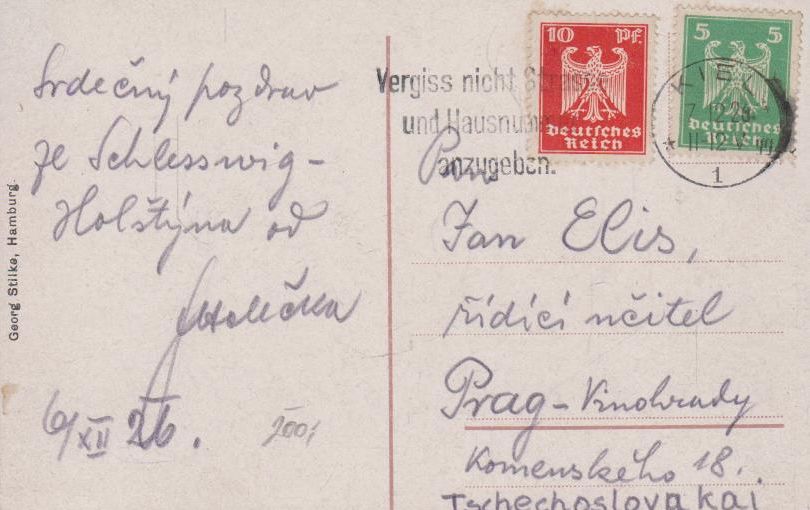 Srdečný pozdrav
ze Schlesswig-
Holštýna od
6/XII 26.
Georg Stilke, Hamburg.
Vergiss nicht Strasse
und Hausnummer
anzugeben.
10 Pf.
Deutsches
Reich
5 5
Deutsches
Reich
KIEL
7.12.26
11-12 V
1
Pan
Jan Elis,
řídící učitel
Prag - Vinohrady
Komenského 18.
Tschechoslovakai